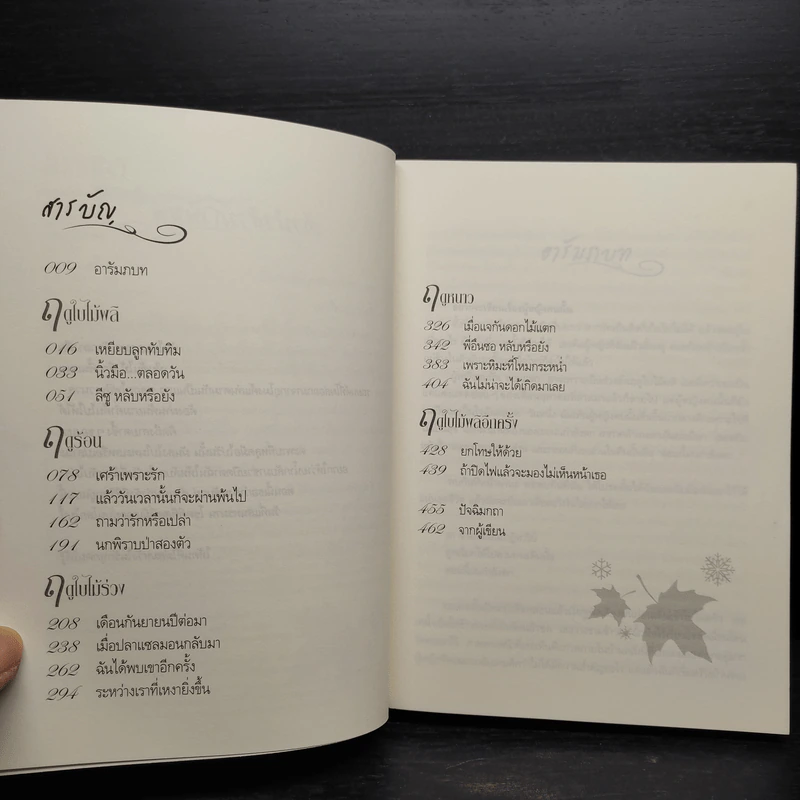 สารบัญ
009 อารัมภบท
ฤดูใบไม้ผลิ
016 เหยียบลูกทับทิม
033 นิ้วมือ...ตลอดวัน
051 ลีซู หลับหรือยัง
ฤดูร้อน
078 เศร้าเพราะรัก
117 แล้ววันเวลานั้นก็จะผ่านพ้นไป
162 ถามว่ารักหรือเปล่า
191 นกพิราบป่าสองตัว
ฤดูใบไม้ร่วง
208 เดือนกันยายนปีต่อมา
238 เมื่อปลาแซลมอนกลับมา
262 ฉันได้พบเขาอีกครั้ง
294 ระหว่างเราที่เหงายิ่งขึ้น
ฤดูหนาว
326 เมื่อแจกันดอกไม้แตก
342 พี่อึนซอ หลับหรือยัง
383 เพราะหิมะที่โหมกระหน่ำ
404 ฉันไม่น่าจะได้เกิดมาเลย
ฤดูใบไม้ผลิอีกครั้ง
428 ยกโทษให้ด้วย
439 ถ้าปิดไฟแล้วจะมองไม่เห็นหน้าเธอ
455 ปัจฉิมกถา
462 จากผู้เขียน